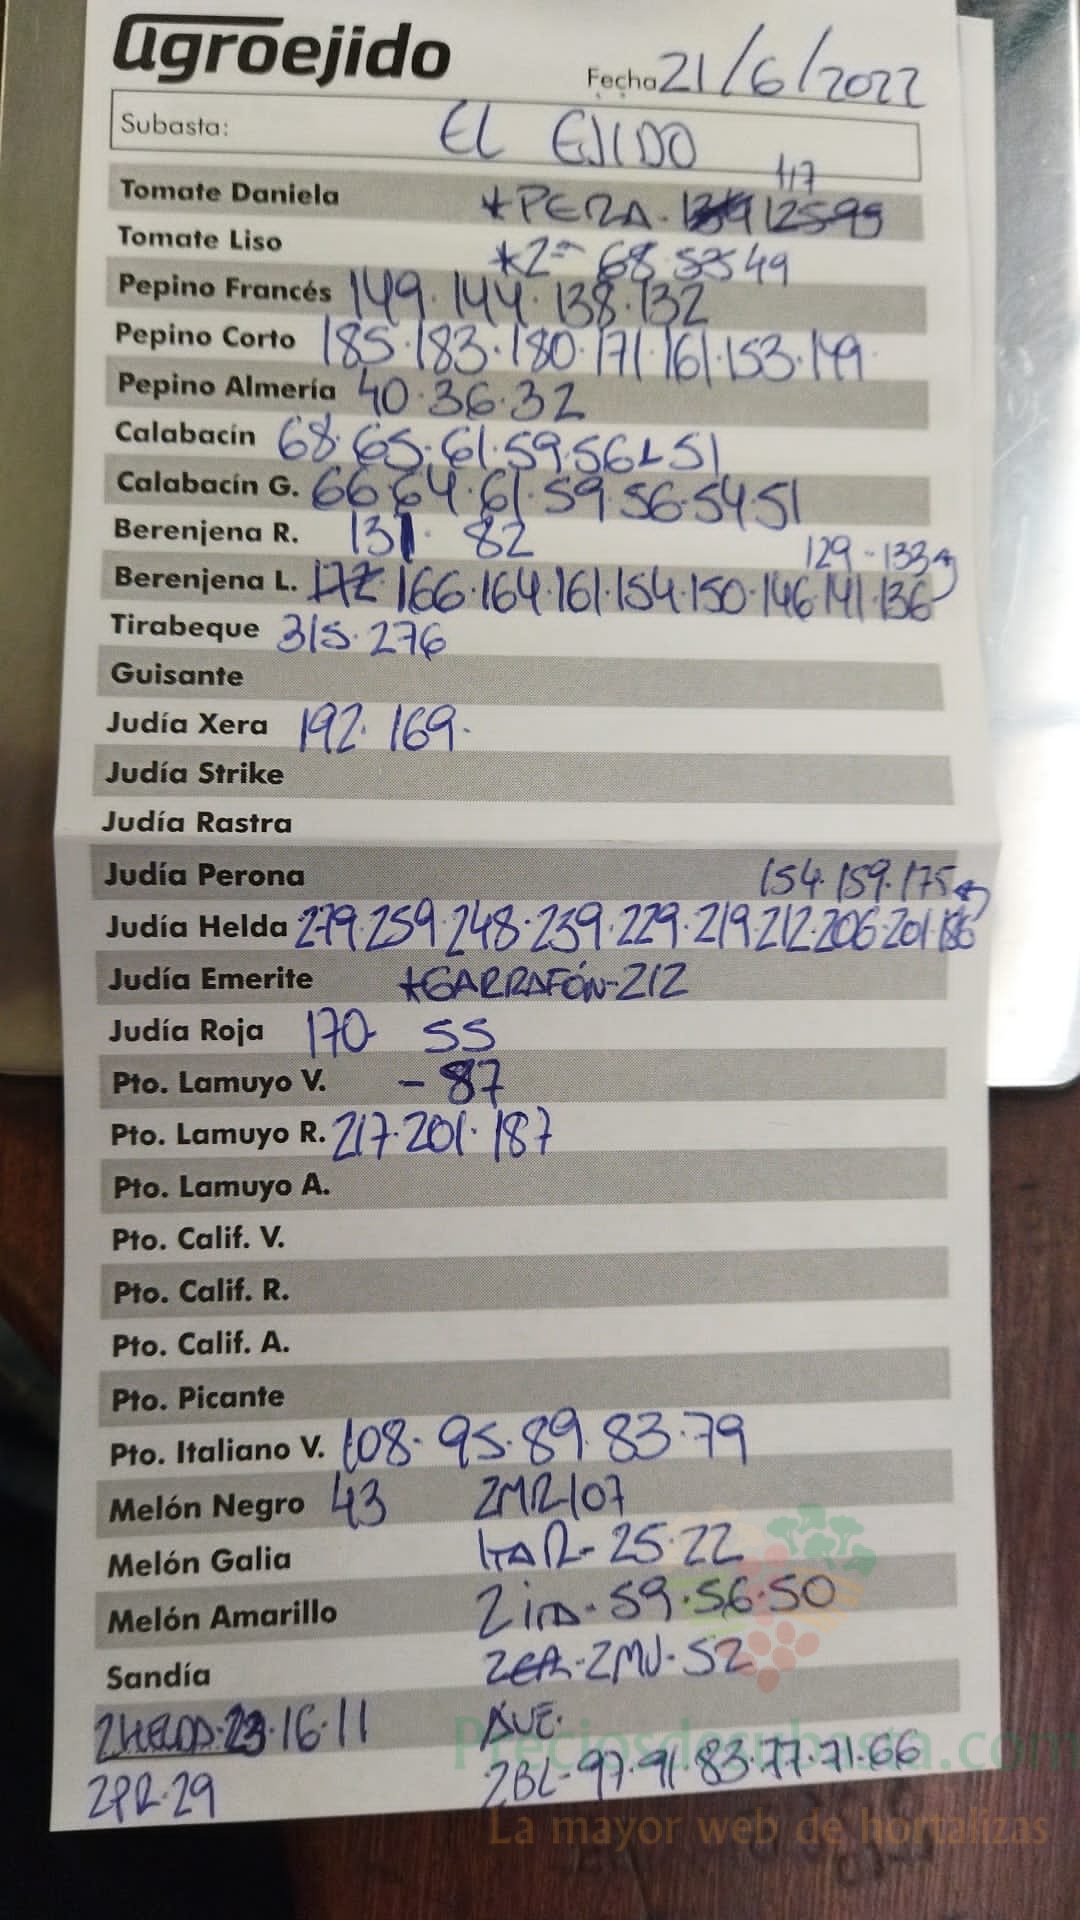 agroejido
Fecha 21/6/2022
Subasta: EL EJIDO
117
Tomate Daniela *PERA. 125 99
Tomate Liso *2ª 68 53 49
Pepino Francés 149. 144. 138. 132
Pepino Corto 185. 183. 180. 171. 161. 153. 149.
Pepino Almería 40. 36. 32
Calabacín 68. 65. 61. 59. 56 51
Calabacín G. 66 64. 61. 59. 56. 54. 51
Berenjena R. 131. 82
129 - 133
Berenjena L. 172 166. 164. 161. 154. 150. 146. 141. 136
Tirabeque 315. 276
Guisante
Judía Xera 192. 169.
Judía Strike
Judía Rastra
Judía Perona 154. 159. 175
Judía Helda 279. 259. 248. 239. 229. 219. 212. 206. 201. 186
Judía Emerite *GARRAFÓN-212
Judía Roja 170- 55
Pto. Lamuyo V. - 87
Pto. Lamuyo R. 217. 201. 187
Pto. Lamuyo A.
Pto. Calif. V.
Pto. Calif. R.
Pto. Calif. A.
Pto. Picante
Pto. Italiano V. 108. 95. 89. 83. 79
Melón Negro 43 2MR107
Melón Galia 25. 22
Melón Amarillo 59. 56. 50
Sandía 2MJ. 52
2HELDA. 23. 16. 11
2PR. 29 2BL- 97. 91. 83. 77. 71. 66
Preciosdesubasta.com
La mayor web de hortalizas